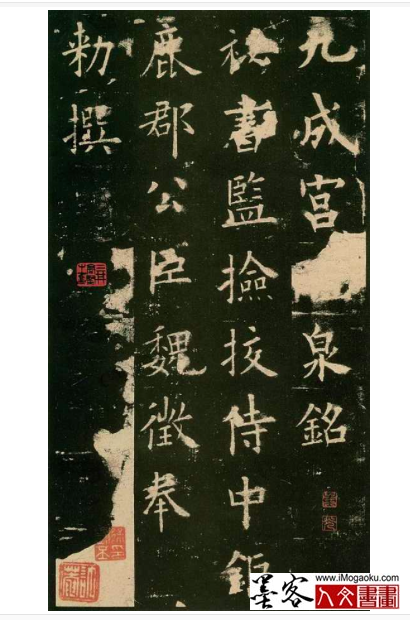 九成宫 泉銘
祕書監撿挍侍中鉅
鹿郡公臣魏徵奉
勑撰
www.iMogaoku.com
墨客
人文書畫